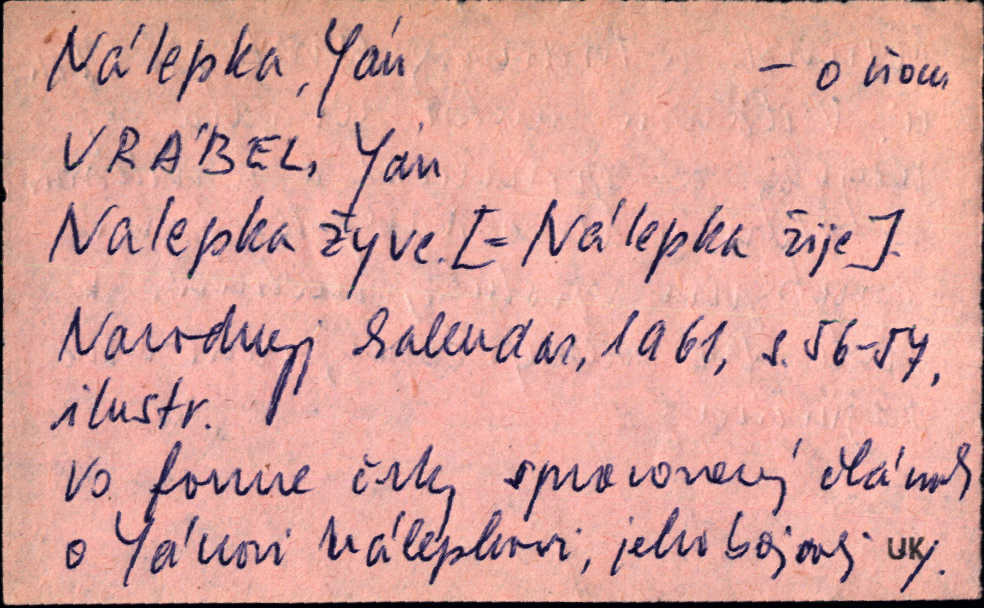 Nálepka, Ján – o ňom
VRÁBEL, Ján
Nalepka žyve. [= Nálepka žije].
Narodnyj kalendar, 1961, s. 56-57,
ilustr.
Vo forme črty spracovaný článok
o Jánovi Nálepkovi, jeho bojovej
UK